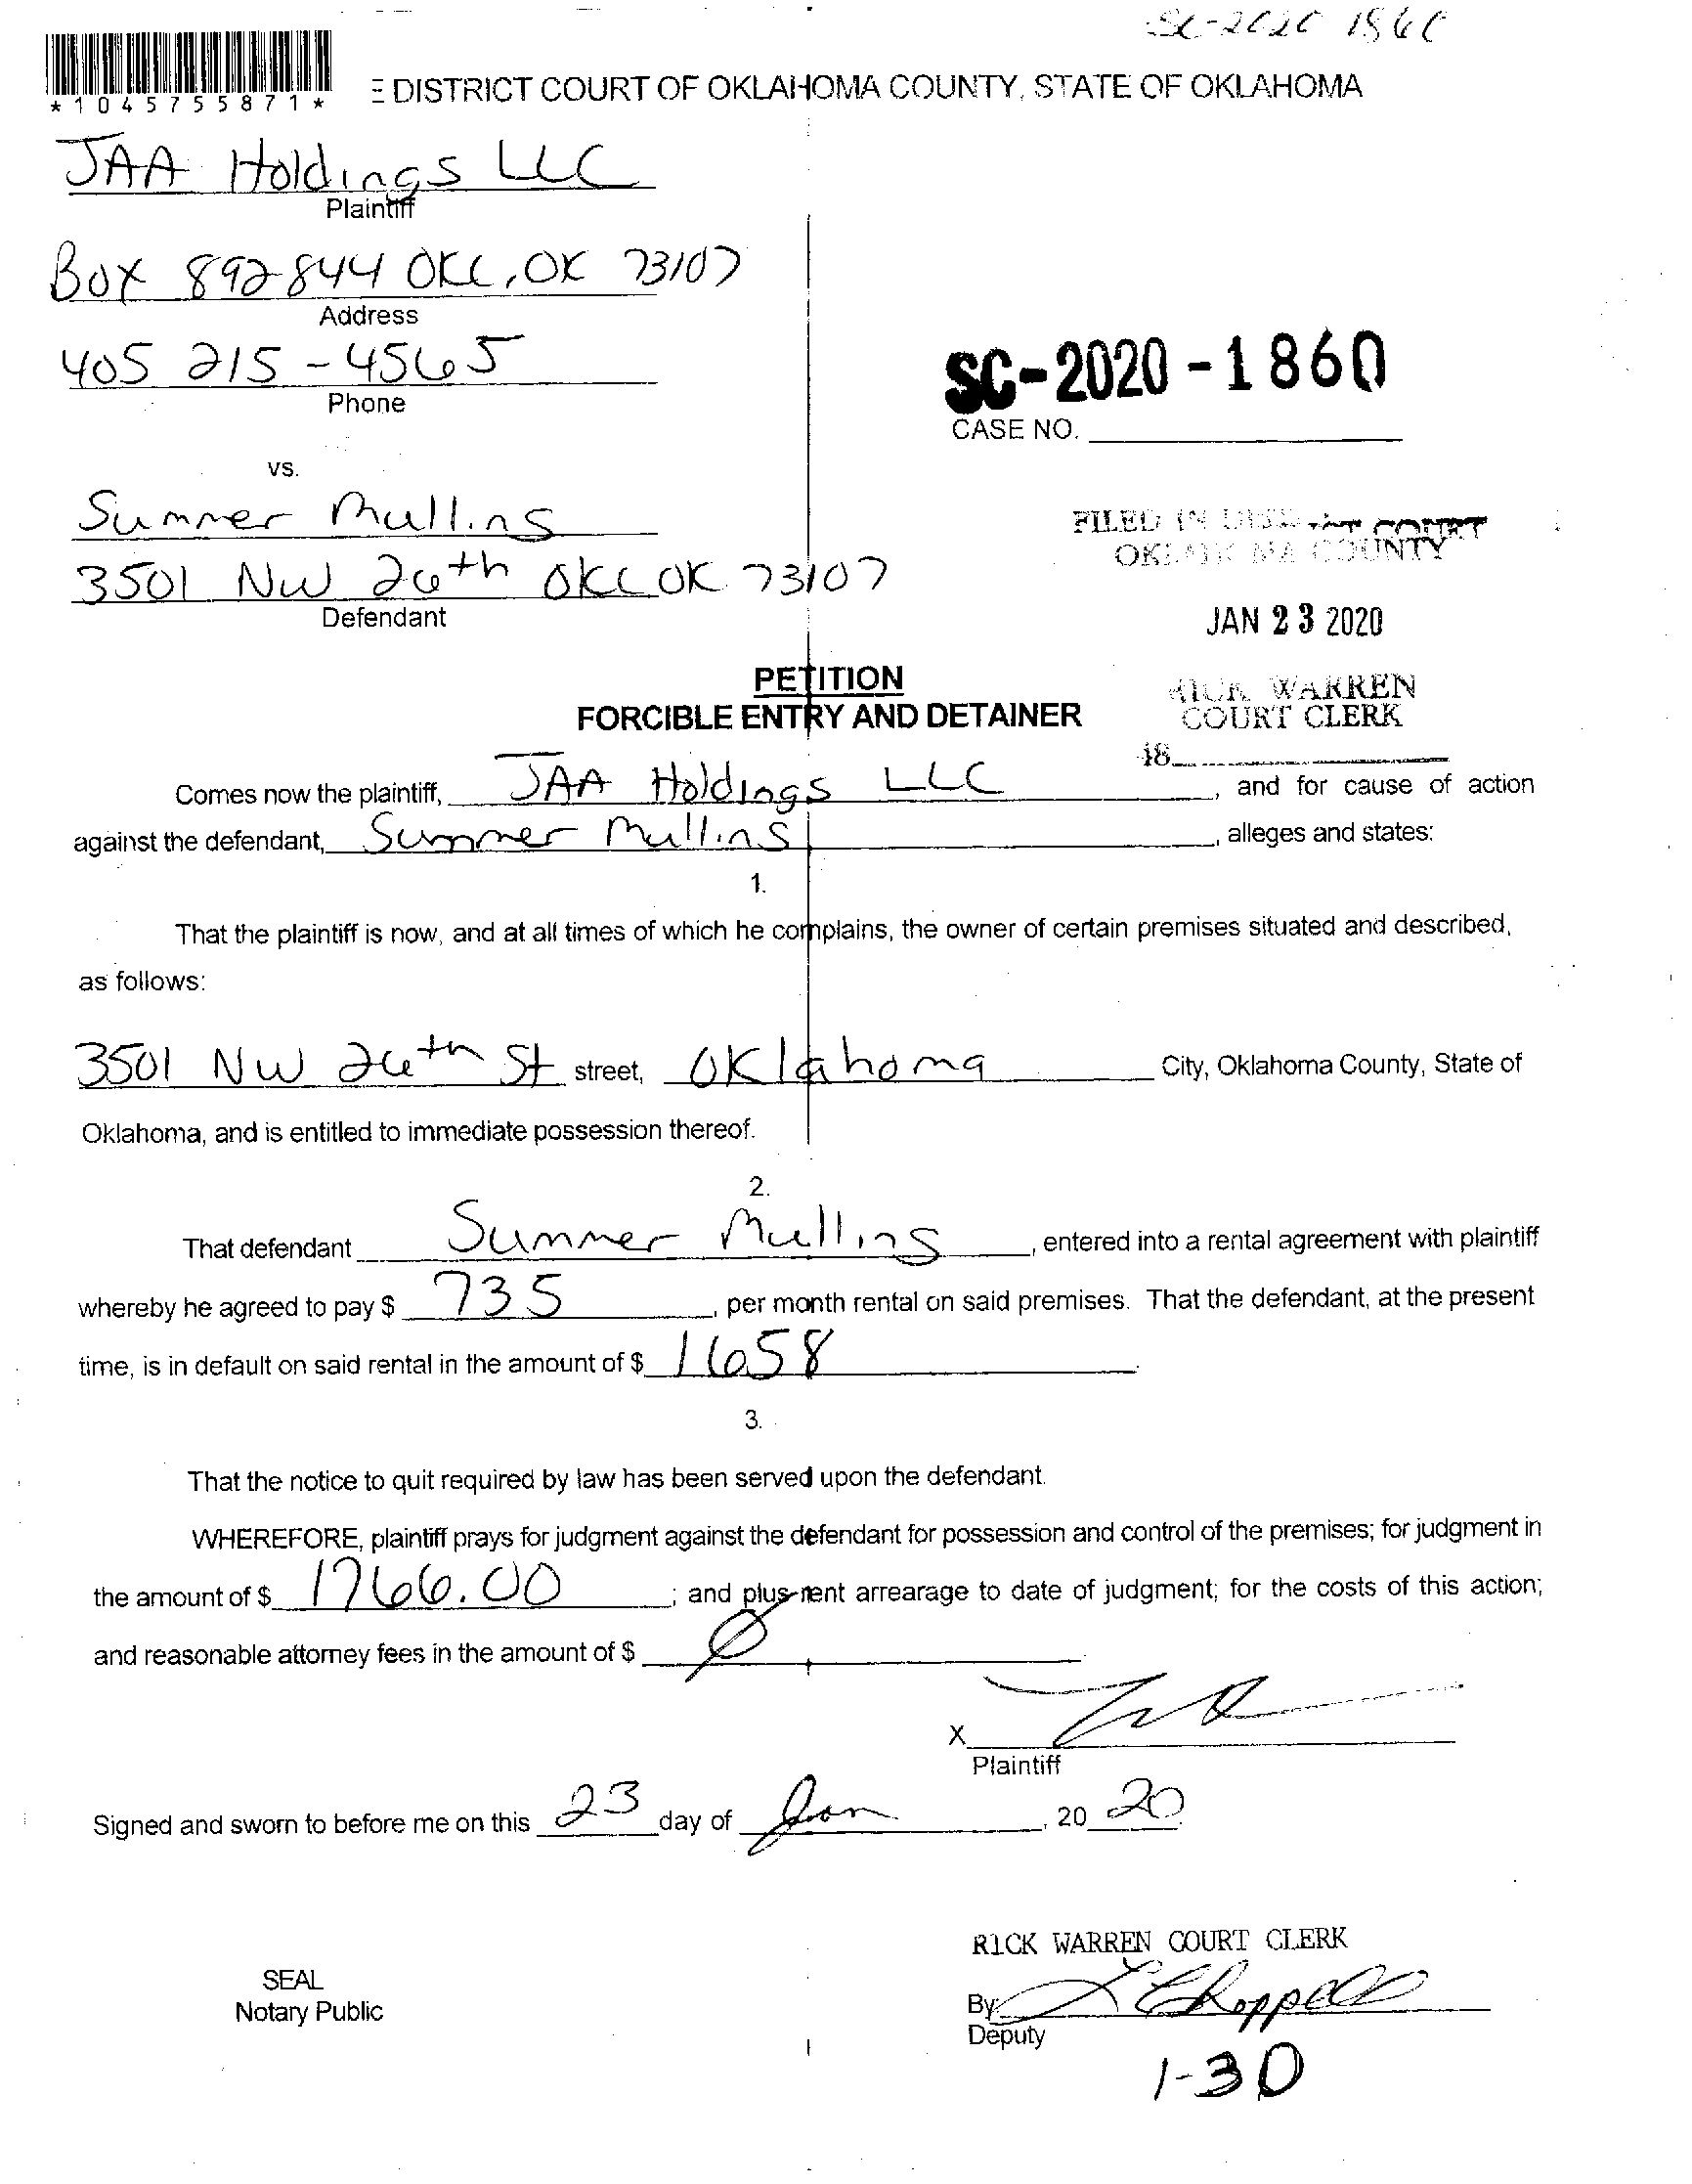 SC-2020 1860
*1045755871*
E DISTRICT COURT OF OKLAHOMA COUNTY, STATE OF OKLAHOMA
JAA Holdings LLC
Plaintiff
Box 892844 OKC, OK 73107
Address
405 215-4565
Phone
SC-2020-1860
CASE NO.
vs.
Summer Mullins
3501 NW 26th OKC OK 73107
Defendant
FILED IN DISTRICT COURT
OKLAHOMA COUNTY
JAN 23 2020
PETITION
FORCIBLE ENTRY AND DETAINER
RICK WARREN
COURT CLERK
Comes now the plaintiff, JAA Holdings LLC, and for cause of action
against the defendant, Summer Mullins, alleges and states:
1.
That the plaintiff is now, and at all times of which he complains, the owner of certain premises situated and described,
as follows:
3501 NW 26th St street, Oklahoma City, Oklahoma County, State of
Oklahoma, and is entitled to immediate possession thereof.
2.
That defendant Summer Mullins, entered into a rental agreement with plaintiff
whereby he agreed to pay $ 735, per month rental on said premises. That the defendant, at the present
time, is in default on said rental in the amount of $ 1658.
3.
That the notice to quit required by law has been served upon the defendant.
WHEREFORE, plaintiff prays for judgment against the defendant for possession and control of the premises; for judgment in
the amount of $ 1766.00; and plus rent arrearage to date of judgment; for the costs of this action;
and reasonable attorney fees in the amount of $ Ø
X
Plaintiff
Signed and sworn to before me on this 23 day of Jan, 20 20.
RICK WARREN COURT CLERK
SEAL
Notary Public
By L Chappell
Deputy
1-30